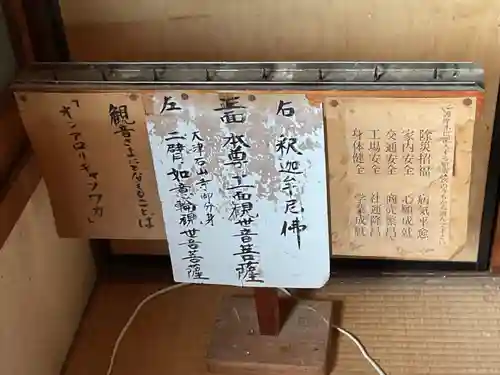 除災招福　病気平癒
家内安全　心願成就
交通安全　商売繁昌
工場安全　社運隆昌
身体健全　学業成就
右 釈迦牟尼佛
正面 本尊十一面観世音菩薩
左 大津石山寺御分身
二臂 如意輪観世音菩薩
観音さまにとなえること
「オンアロリキャソワカ」